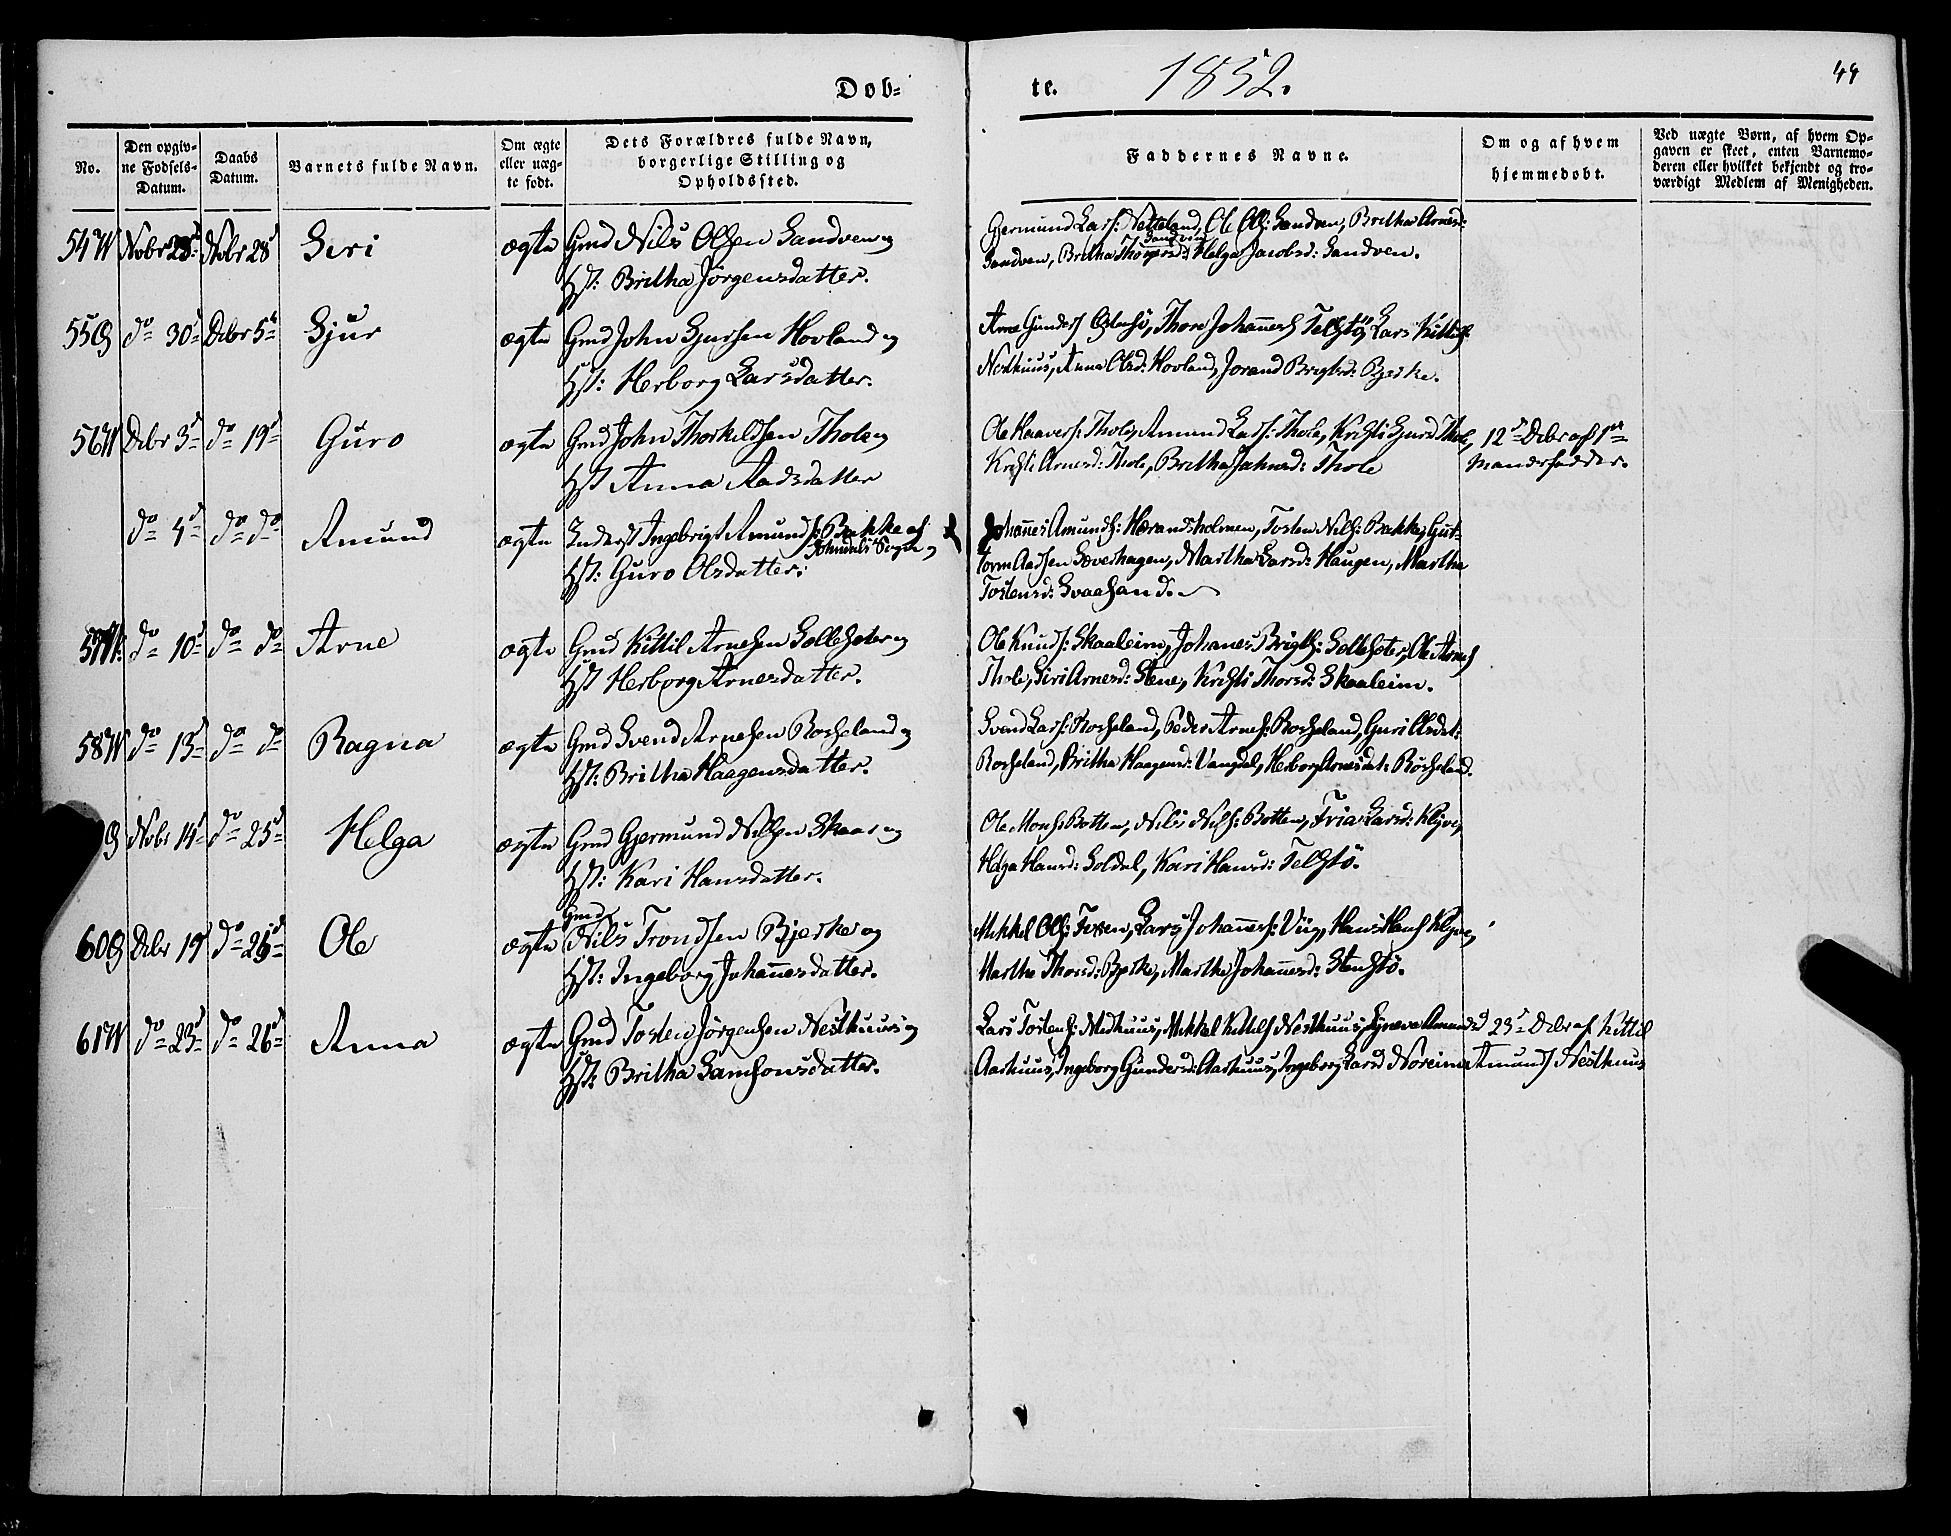 Døb-
te.
1852.
44
No.
Den opgiv-
ne Fødsels-
Datum.
Daabs
Datum.
Barnets fulde Navn.
Om ægte
eller uæg-
te født.
Dets Forældres fulde Navn,
borgerlige Stilling og
Opholdssted.
Faddernes Navne.
Om og af hvem
hjemmedøbt.
Ved uægte Børn, af hvem Op-
gaven er skeet, enten Barnemo-
deren eller hvilket bekjendt og tro-
værdigt Medlem af Menigheden.
54 Nobr Nobr 28 Siri ægte Gmd Nils Olsen Sandven og
Hst: Britha Jörgensdatter.
Germund Lars: Netteland, Ole Ols: Sandven, Britha Arnesd:
Sandven
Sandven, Britha Helga Jacobsd: Sandven.
55 do 30 Debr 5 Sjur ægte Gmd John Sjursen Hovland og
Hst: Herborg Larsdatter.
Arne Thore Johannes Telstø, Lars Kittils:
Nesthuus, Anna Olsd: Hovland, Jorand Bjerke.
56 Debr 3 do 19 Guro ægte Gmd John Thorkildsen Thole og
Hst Anna Aadsdatter
Ole Thole, Amund Lars: Thole, Kristi Sjursd Thole,
Kristi Arnesd: Thole, Britha Johnsd: Thole
12 Debr af
do 4 do do Amund ægte Inderst Ingebrigt Amunds: Bakke af
Hst: Guro Olsdatter.
Johannes Amunds: Tosten Nils: Bakke, Gut-
torm Aadsen Martha Larsd: Haugen, Martha
Tostensd: Svaasand.
57 do 10 do do Arne ægte Gmd Kittil Arnesen Solleseter og
Hst Herborg Arnesdatter.
Ole Knuds: Skaaleim, Johanes Brigts: Solleseter, Ole Arnes
Thole, Siri Arnesd: Stene, Kristi Thorsd: Skaaleim.
58 do 13 do do Ragna ægte Gmd Svend Arnesen Rosseland og
Hst: Britha Haagensdatter.
Svend Lars: Rosseland, Peder Arnes: Rosseland, Guri Olsdat:
Rosseland, Britha Haagensd: Vangdal, Herborg Arnesdat: Rosseland.
Nobr 14 do 25 Helga ægte Gmd Gjermund Nilsen Skaar og
Hst: Kari Hansdatter.
Ole Mons: Botten, Nils Nils: Botten, Larsd: Klyve,
Helga Hansd: Soldal, Kari Hansd: Telstø.
Gmd
60 Debr 19 do 26 Ole ægte Nils Trondsen Bjerke og
Hst: Ingeborg Johannesdatter.
Mikkel Ols: Tossen, Lars Johannes: Viig, Hans Hans Klyve,
Martha Thorsd: Bjerke, Martha Johannesd: Stenstø.
61 do 23 do 26 Anna ægte Gmd Tosten Jörgensen Nesthuus og
Hst: Britha Samsonsdatter.
Lars Tostens: Mikkel Kittils Nesthuus, Synneva Amundsd
Aarhuus, Ingeborg Gundersd: Aarhuus, Ingeborg Larsd Noreim
23 Debr af Kittil
Amunds Nesthuus